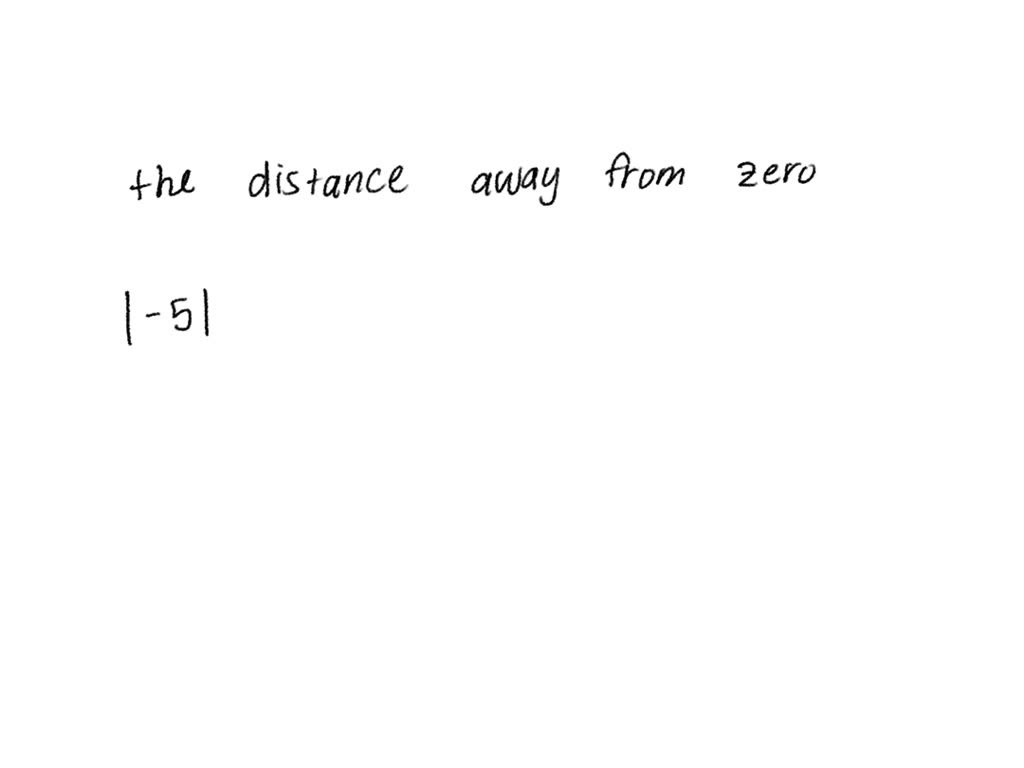 the distance away from zero
|-5|